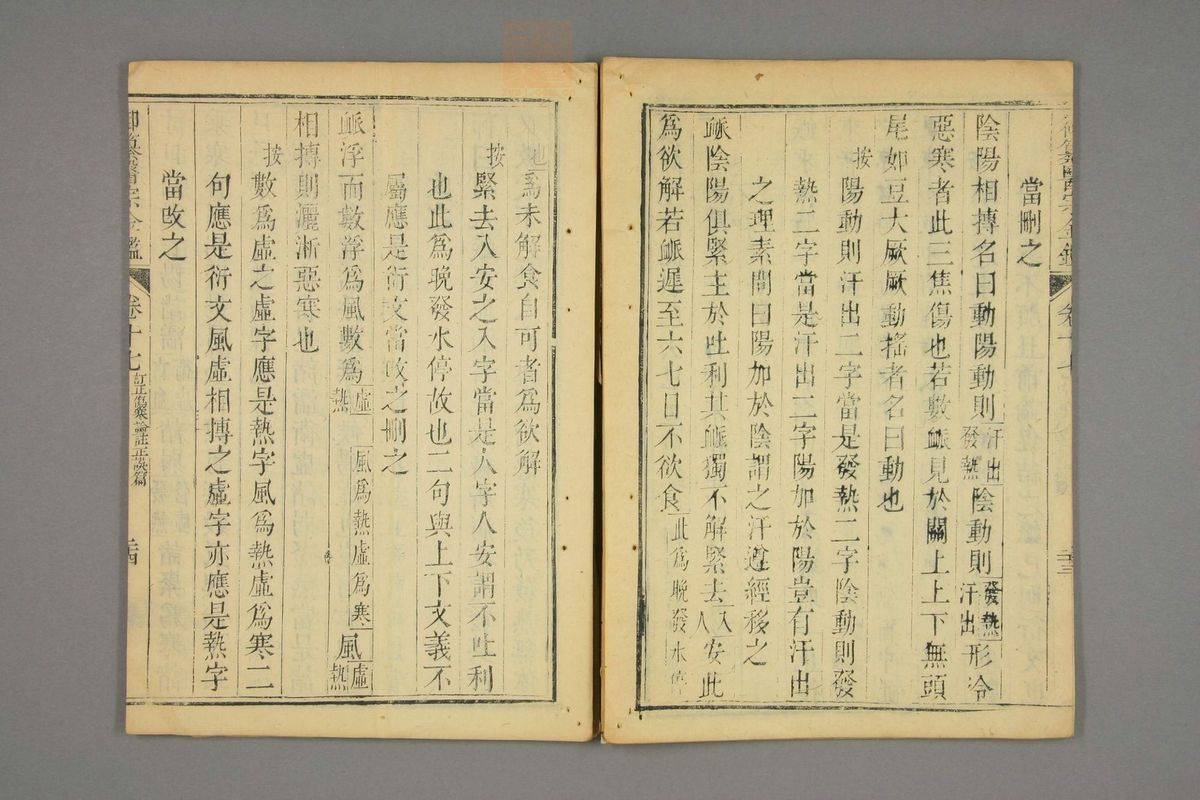 當刪之
陰陽相摶名曰動陽動則汗出發熱陰動則發熱汗出形冷
惡寒者此三焦傷也若數脈見於關上上下無頭
尾如豆大厥厥動搖者名曰動也
按陽動則汗出二字當是發熱二字陰動則發
熱二字當是汗出二字陽加於陽豈有汗出
之理素問曰陽加於陰謂之汗遵經移之
脈陰陽俱緊主於吐利其脈獨不解緊去入人安此
為欲解若脈遲至六七日不欲食此為晚發水停
故也為未解食自可者為欲解
按緊去入安之入字當是人字人安謂不吐利
也此為晚發水停故也二句與上下文義不
屬應是衍文當改之刪之
脈浮而數浮為風數為虛熱風為熱虛為寒風虛熱
相摶則灑淅惡寒也
按數為虛之虛字應是熱字風為熱虛為寒二
句應是衍文風虛相摶之虛字亦應是熱字
當改之
御纂醫宗金鑑 卷十七 訂正傷寒論註正誤篇 二四